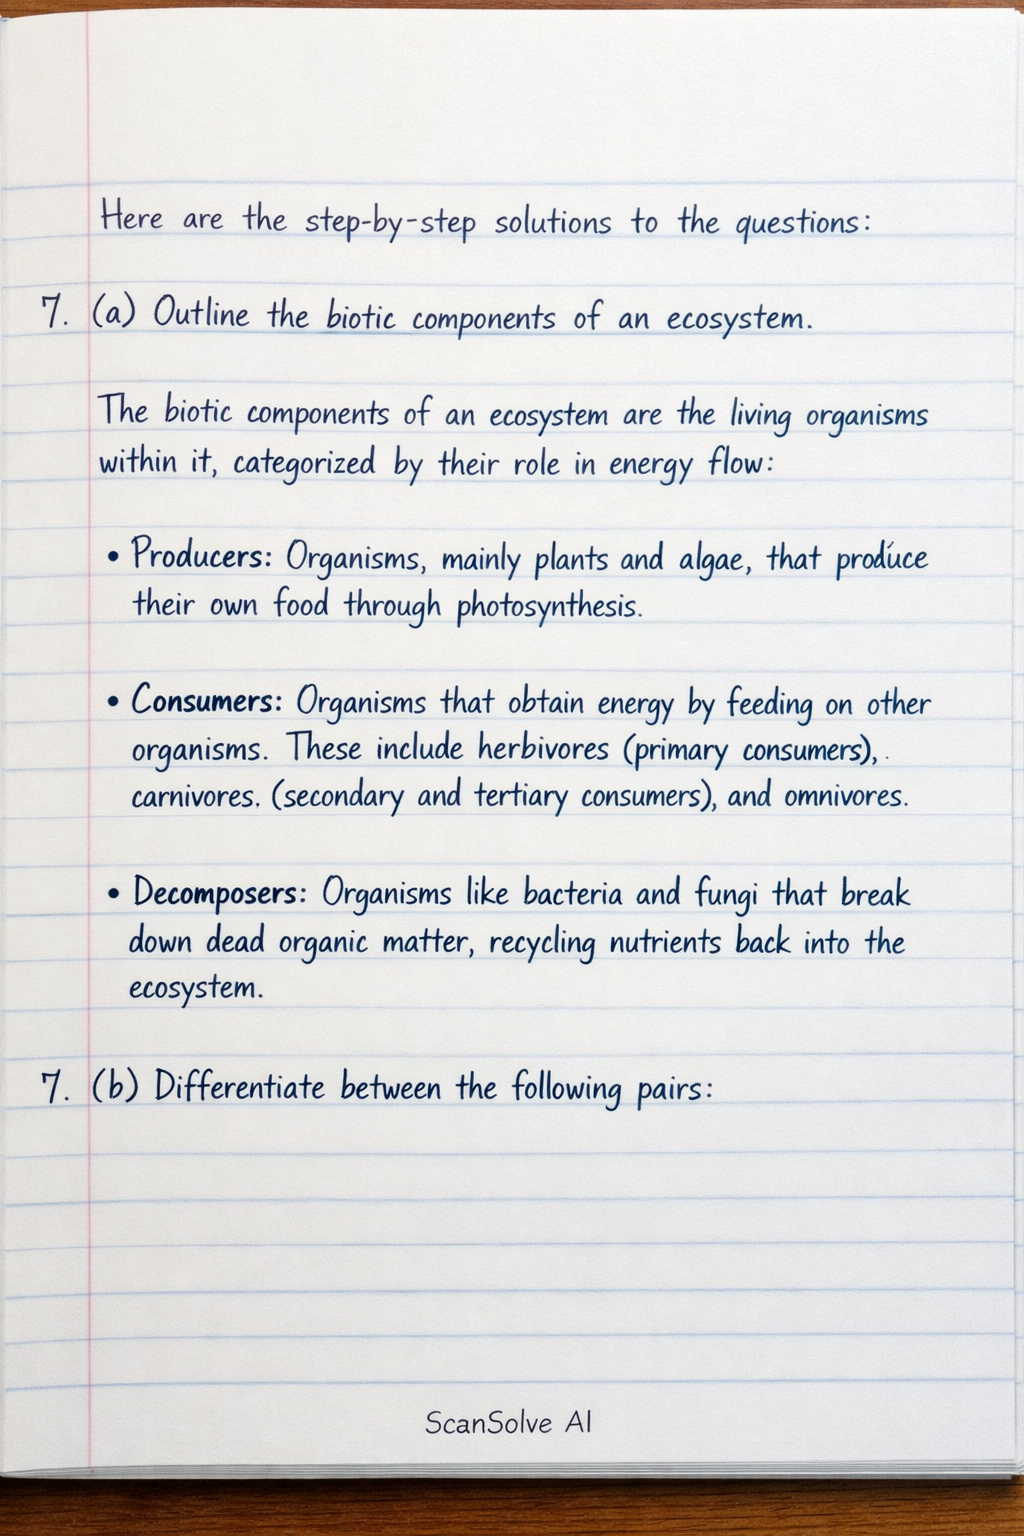 Here are the step-by-step solutions to the questions:
7. (a) Outline the biotic components of an ecosystem.
The biotic components of an ecosystem are the living organisms
within it, categorized by their role in energy flow:
• Producers: Organisms, mainly plants and algae, that produce
their own food through photosynthesis.
• Consumers: Organisms that obtain energy by feeding on other
organisms. These include herbivores (primary consumers), .
carnivores. (secondary and tertiary consumers), and omnivores.
• Decomposers: Organisms like bacteria and fungi that break
down dead organic matter, recycling nutrients back into the
ecosystem.
7. (b) Differentiate between the following pairs:
ScanSolve AI